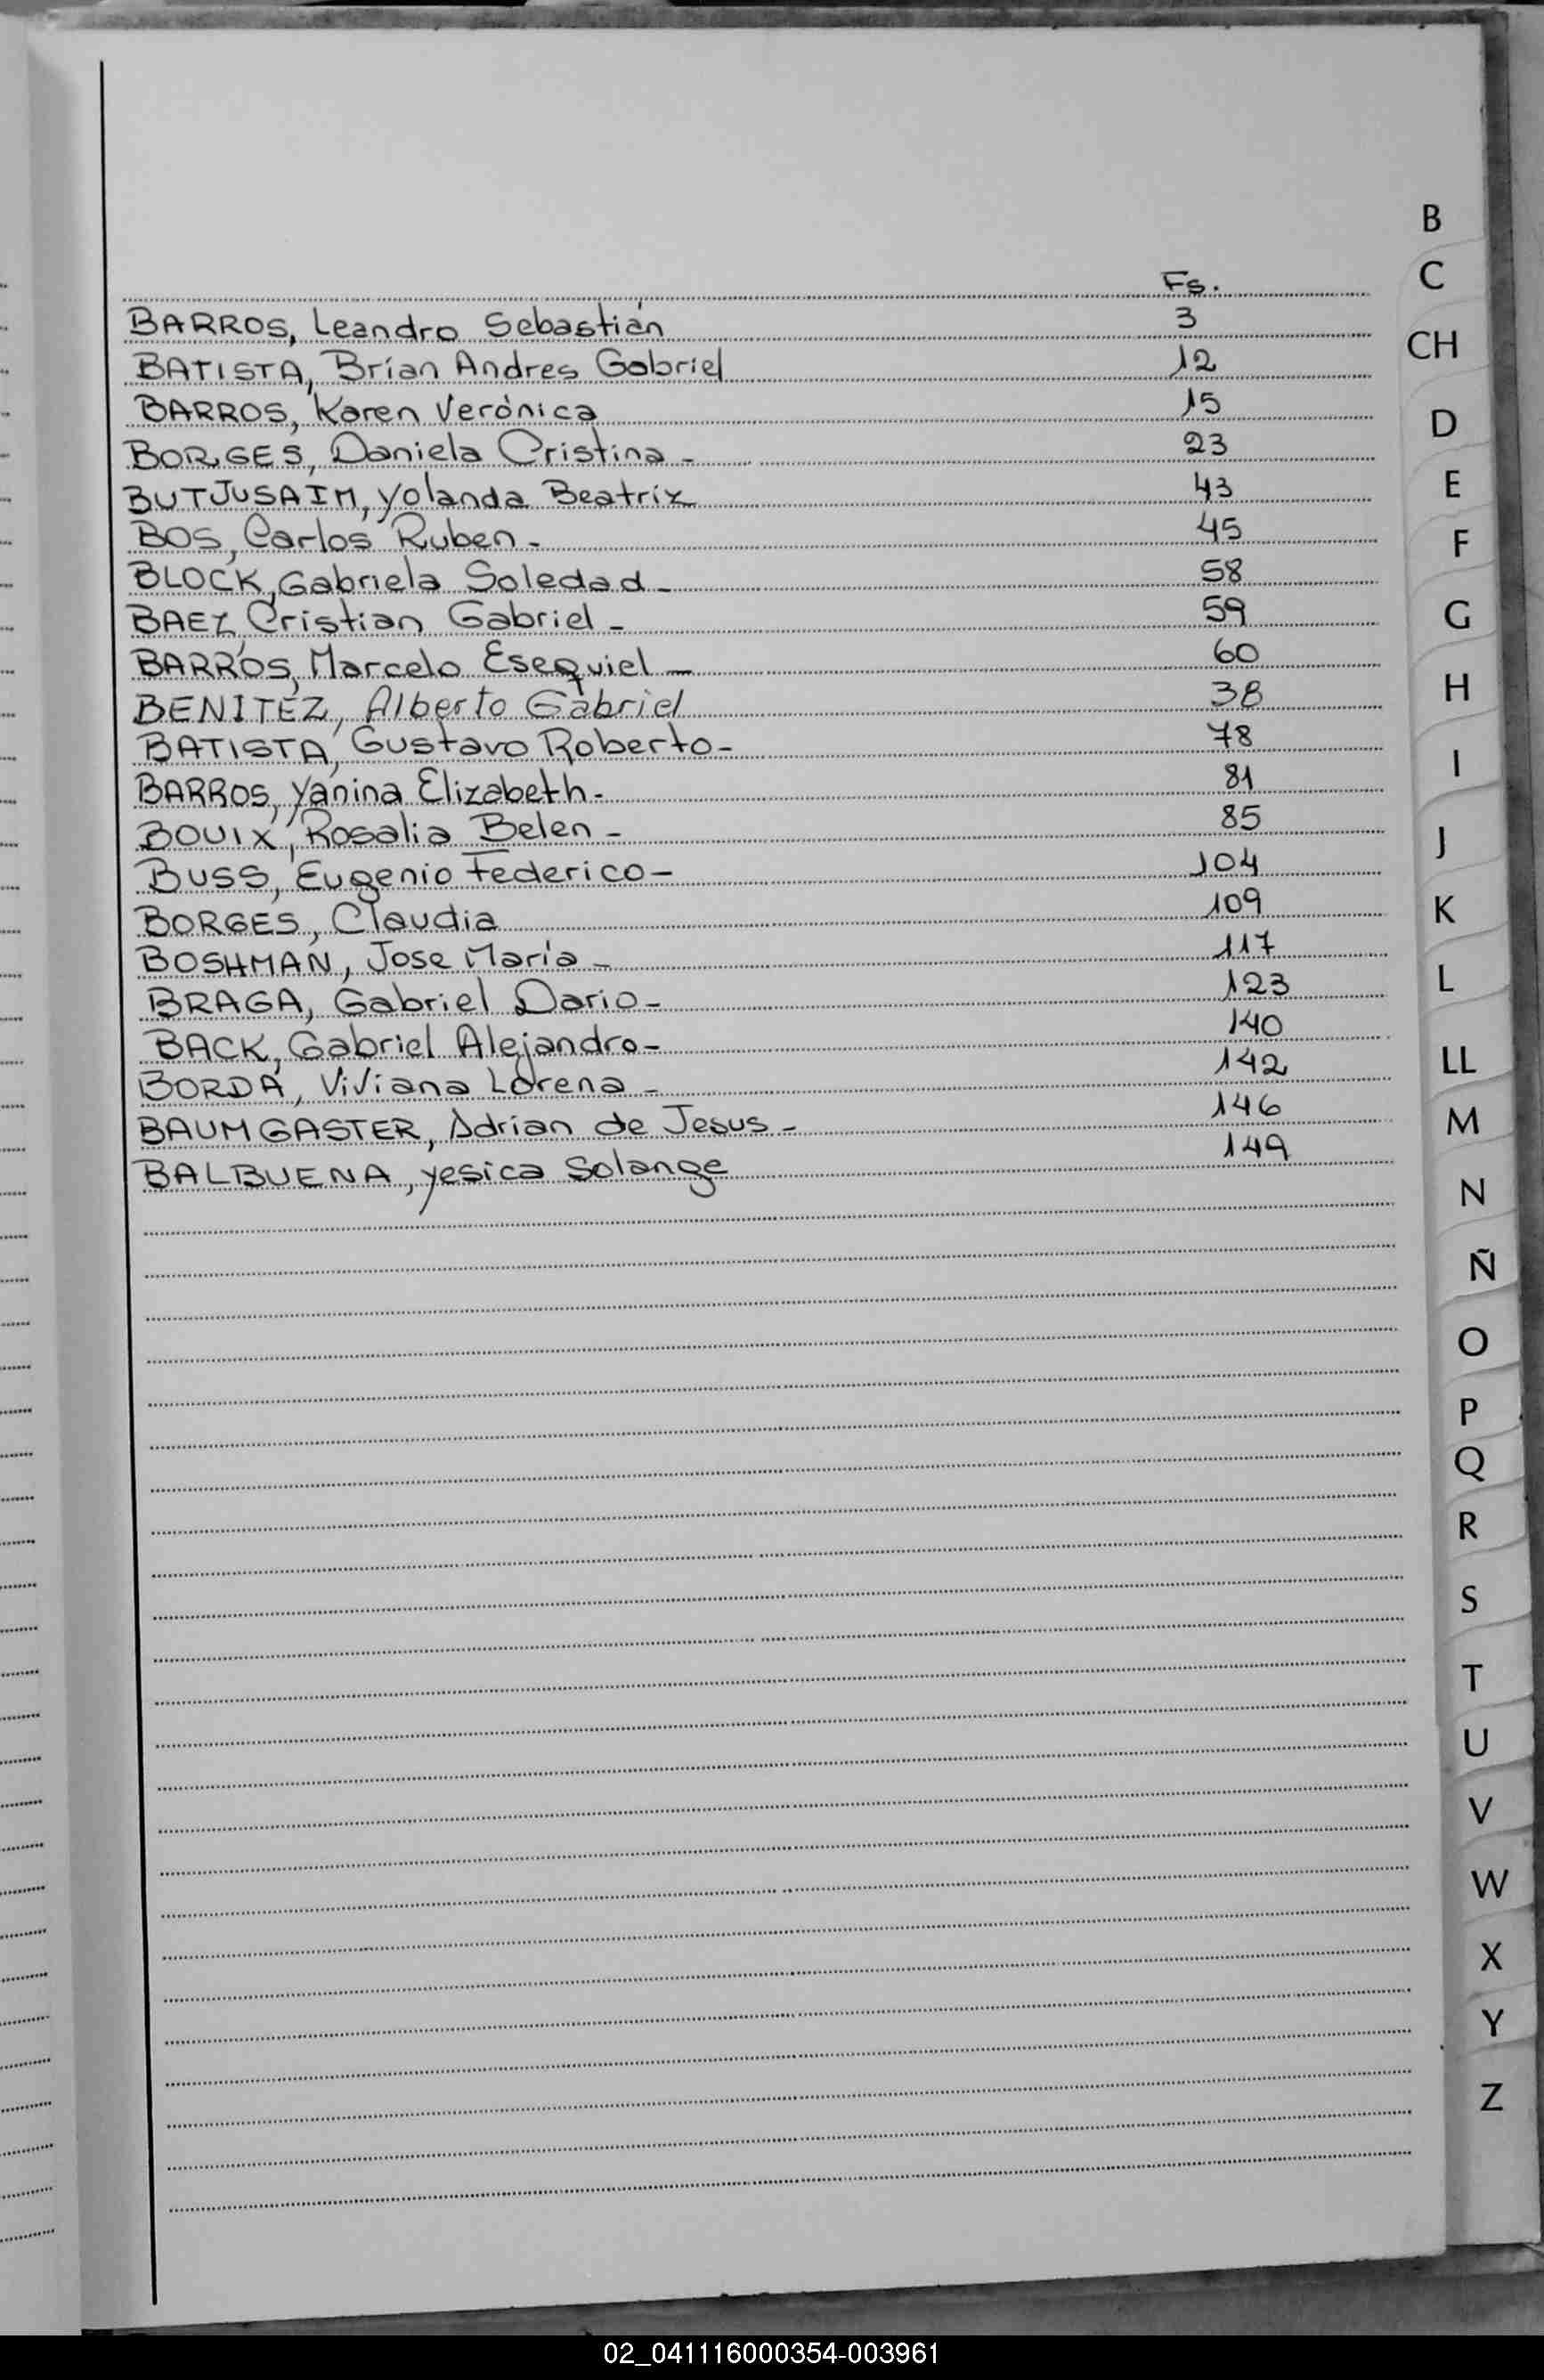 Fs.
BARROS, Leandro Sebastián 3
BATISTA, Brian Andres Gabriel 12
BARROS, Karen Verónica 15
BORGES, Daniela Cristina - 23
BUTJUSAIM, Yolanda Beatriz 43
BOS, Carlos Ruben - 45
BLOCK, Gabriela Soledad - 58
BAEZ, Cristian Gabriel - 59
BARROS, Marcelo Esequiel - 60
BENITEZ, Alberto Gabriel 38
BATISTA, Gustavo Roberto - 78
BARROS, Yanina Elizabeth - 81
BOUIX, Rosalia Belen - 85
BUSS, Eugenio Federico - 104
BORGES, Claudia 109
BOSHMAN, Jose María - 117
BRAGA, Gabriel Dario - 123
BACK, Gabriel Alejandro - 140
BORDA, Viviana Lorena - 142
BAUMGASTER, Adrian de Jesus - 146
BALBUENA, Yesica Solange 149
B
C
CH
D
E
F
G
H
I
J
K
L
LL
M
N
Ñ
O
P
Q
R
S
T
U
V
W
X
Y
Z
02_041116000354-003961